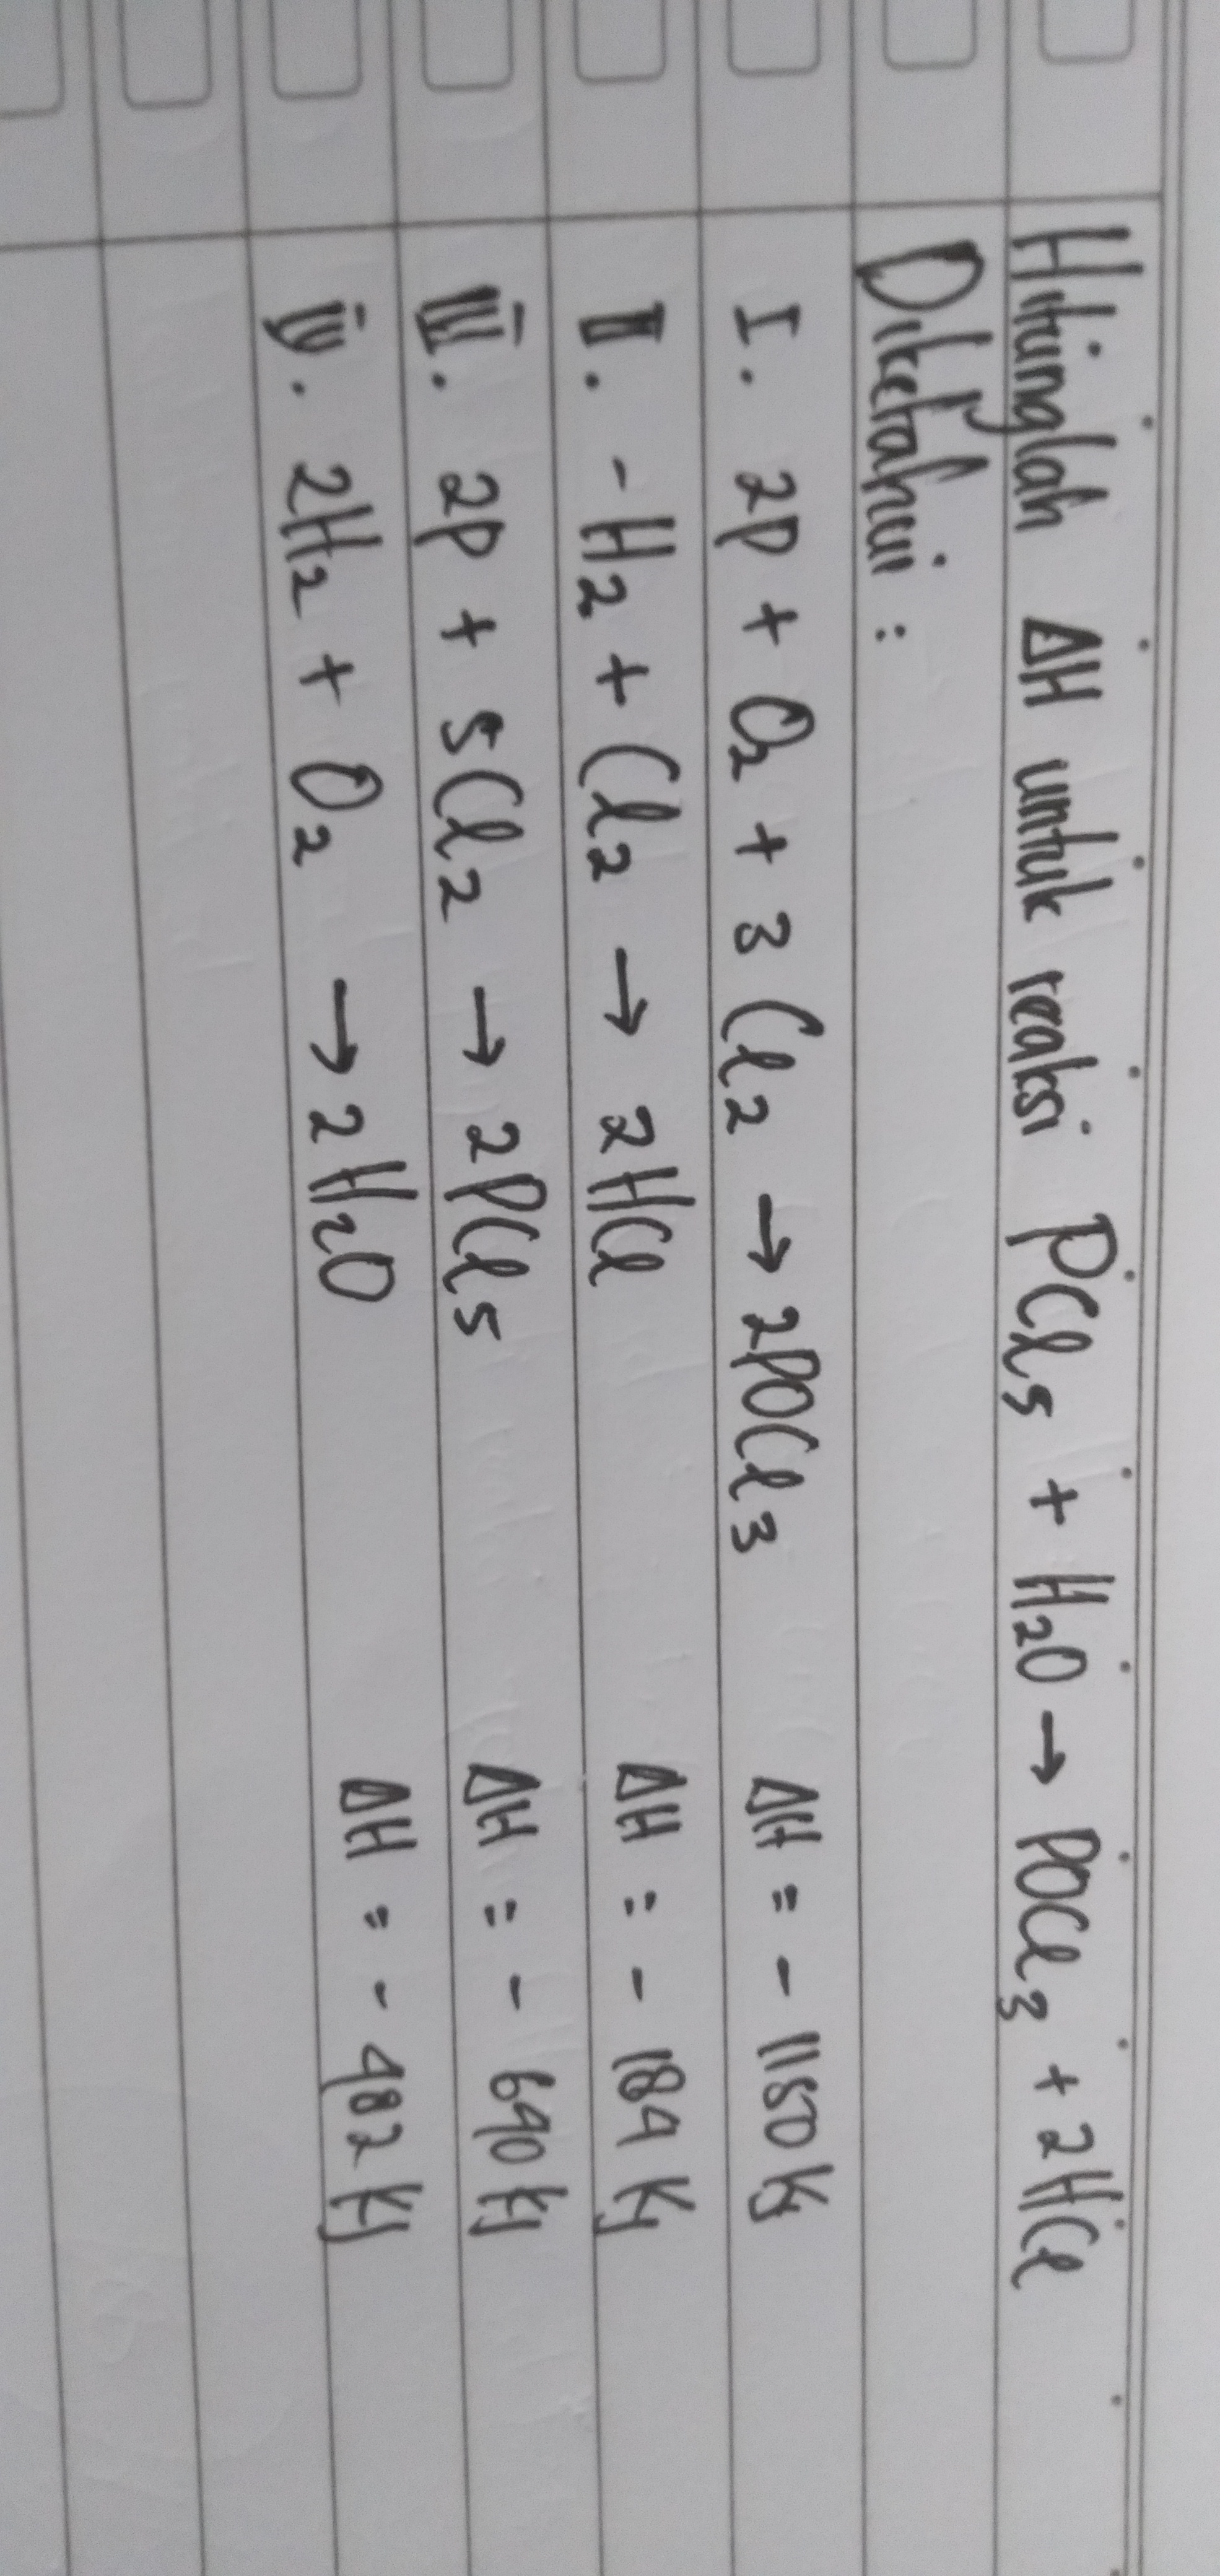 Hitunglah ΔH untuk reaksi PCl₅ + H₂O → POCl₃ + 2HCl
Diketahui :
I. 2P + O₂ + 3 Cl₂ → 2POCl₃ ΔH = - 1150 Kj
II. - H₂ + Cl₂ → 2 HCl ΔH = - 184 Kj
III. 2P + 5Cl₂ → 2PCl₅ ΔH = - 640 Kj
IV. 2H₂ + O₂ → 2H₂O ΔH = - 482 Kj